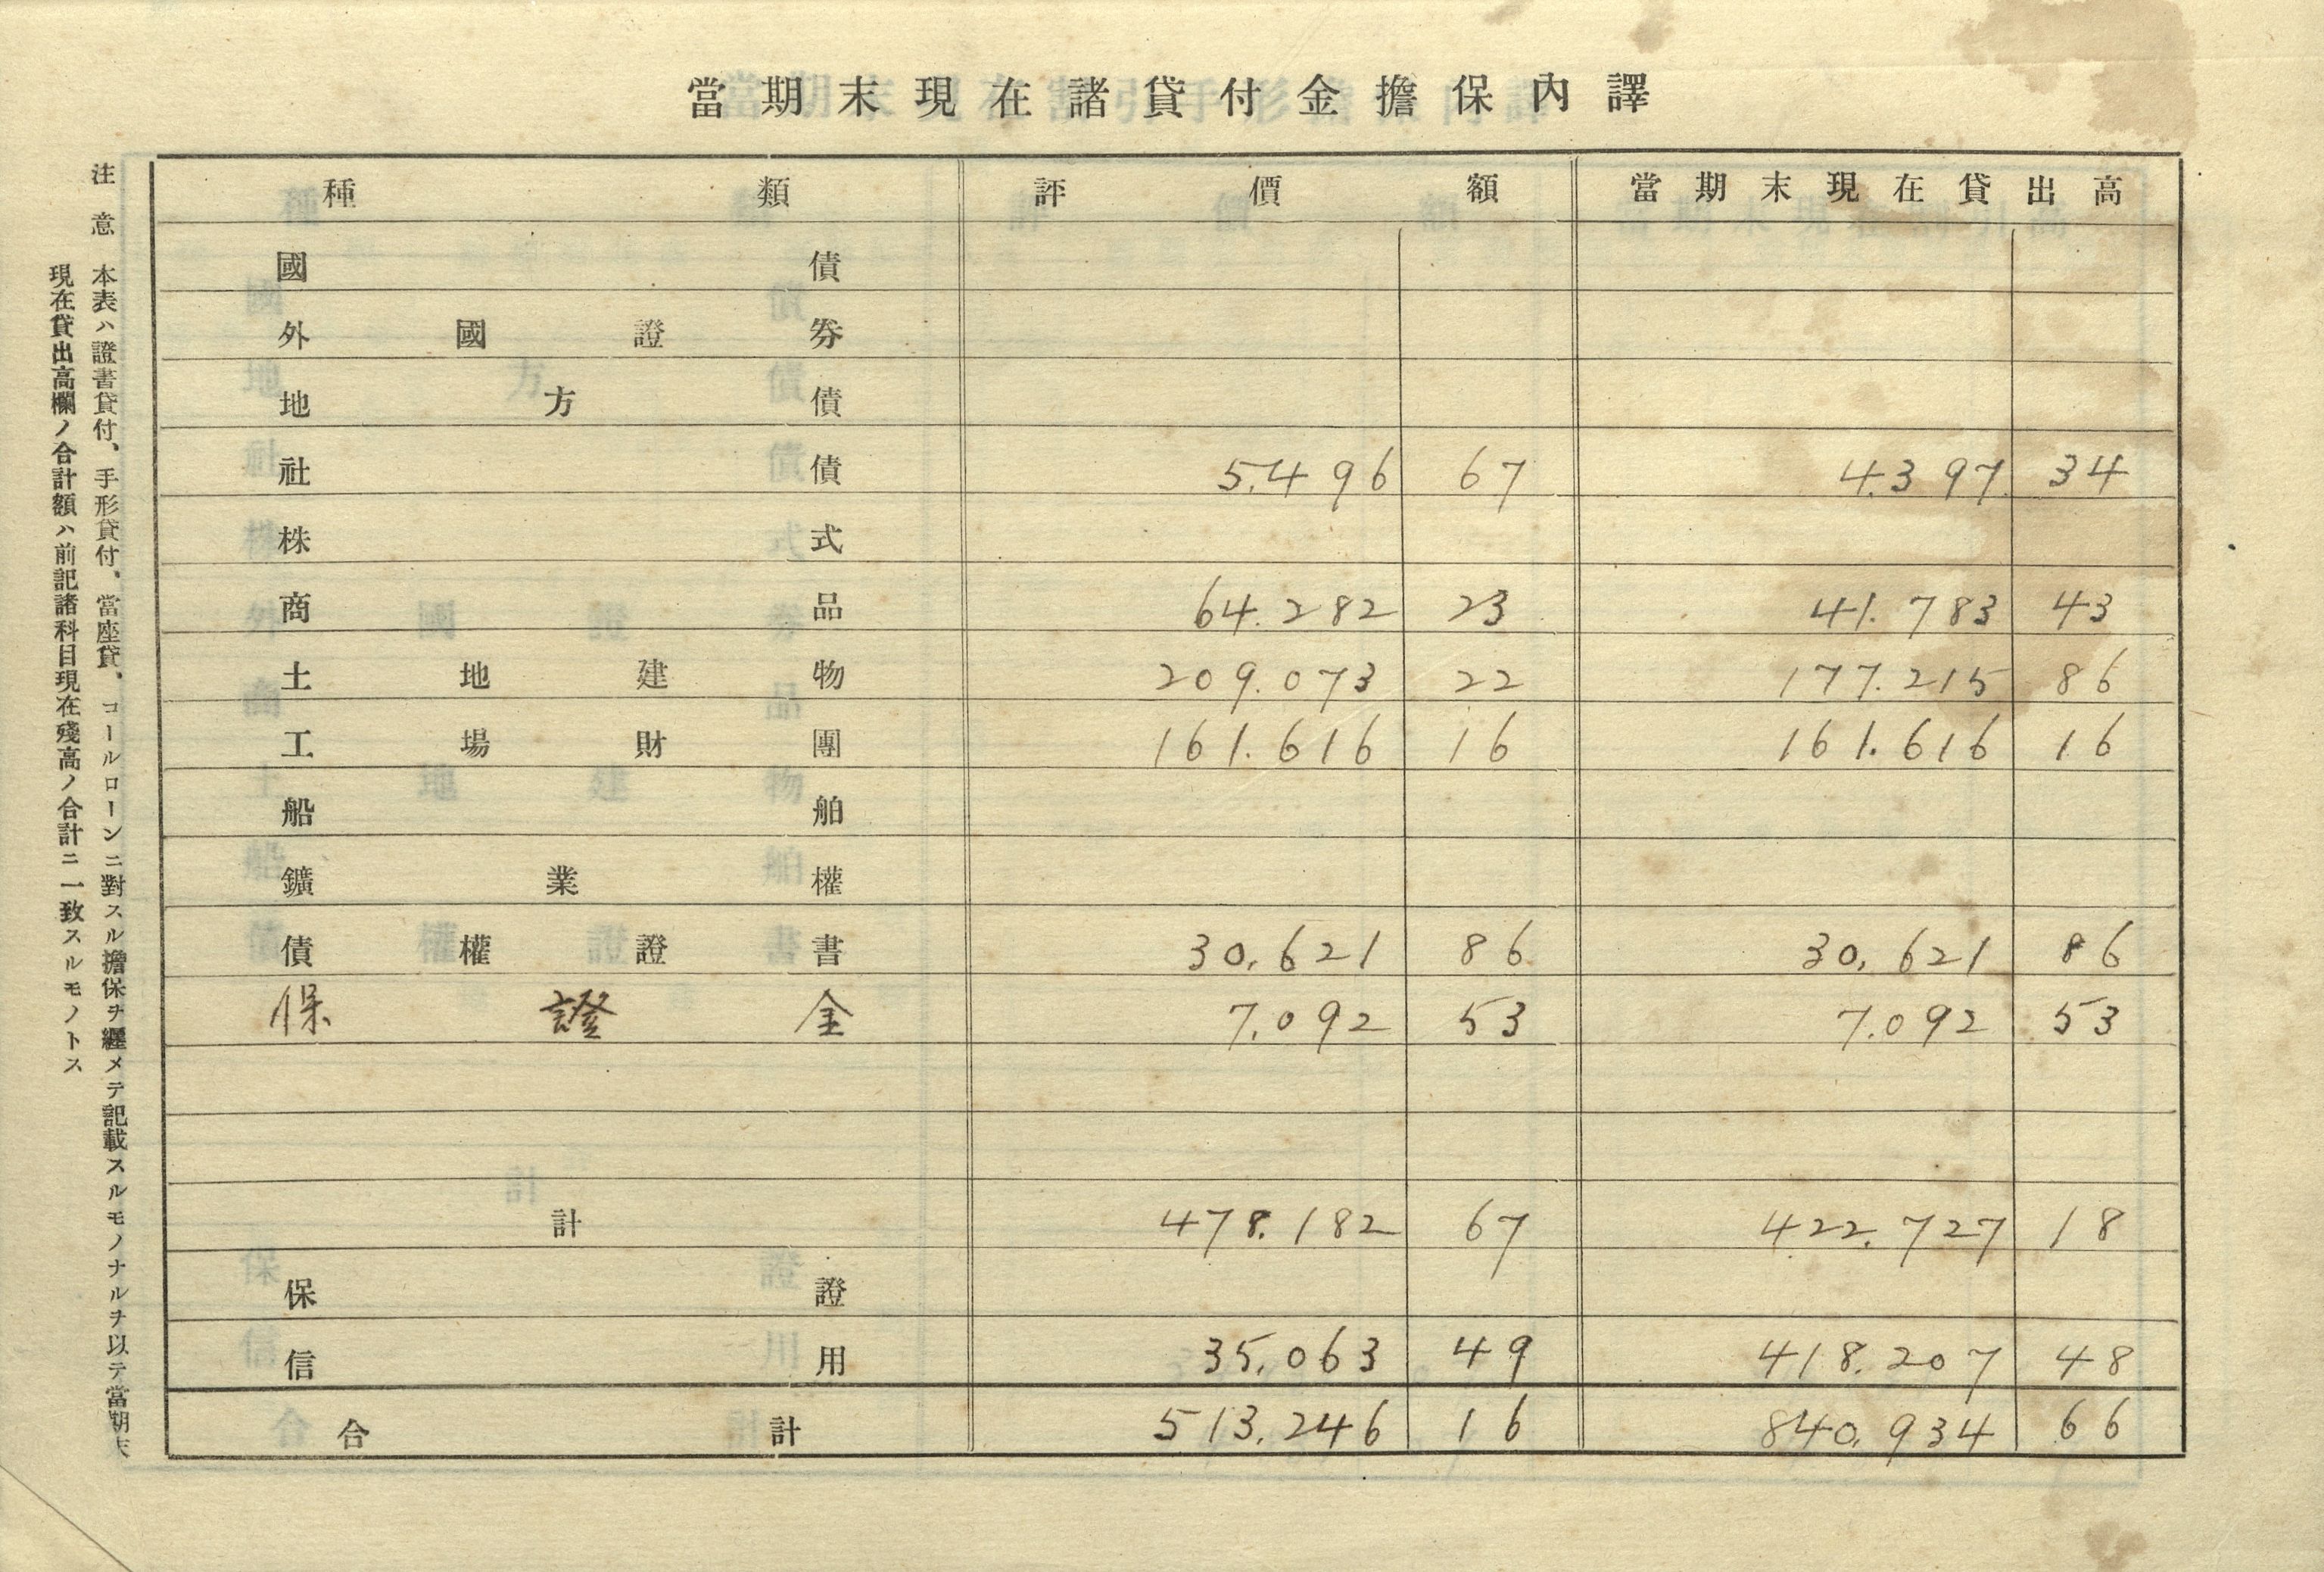 當期末現在諸貸付金擔保內譯
種類 評價額 當期末現在貸出高
國債
外國證券
地方債
社債 5.496 67 4.397 34
株式
商品 64.282 23 41.783 43
土地建物 209.073 22 177.215 86
工場財團 161.616 16 161.616 16
船舶
鑛業權
債權證書 30,621 86 30,621 86
保證金 7.092 53 7.092 53
計 478.182 67 422.727 18
保證
信用 35.063 49 418.207 48
合計 513.246 16 840.934 66
注意 本表ハ證書貸付、手形貸付、當座貸、コールローンニ對スル擔保ヲ纒メテ記載スルモノナルヲ以テ當期末
現在貸出高欄ノ合計額ハ前記諸科目現在殘高ノ合計ニ一致スルモノトス